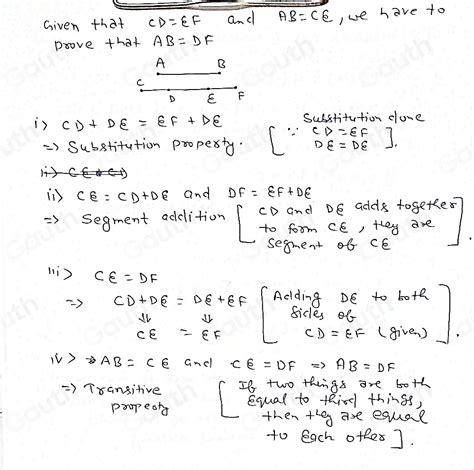 Given that CD=EF and AB=CE, we have to
prove that AB=DF
A B
C
D E F
i) CD+DE = EF+DE
=> Substitution property. [ Substitution done
∵ CD=EF
DE=DE ].
ii) CE = CD+DE and DF = EF+DE
=> Segment addition [ CD and DE adds together
to form CE, they are
segment of CE ].
iii) CE = DF
=> CD+DE = DE+EF [ Adding DE to both
⇓ ⇓ sides of
CE = EF CD=EF (given) ].
iv) => AB = CE and CE=DF => AB=DF
=> Transitive [ If two things are both
property equal to third things,
then they are equal
to each other ].